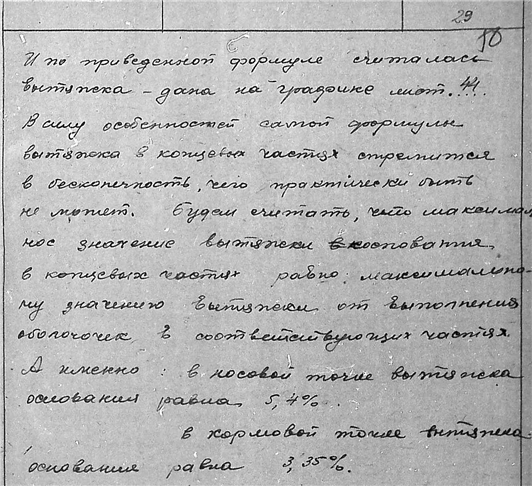 29
50
И по приведенной формуле считалась
вытяжка – дана на графике лист.
В силу особенностей самой формулы
вытяжка в концевых частях стремится
в бесконечность, чего практически быть
не может. Будем считать, что максимал
ное значение вытяжки основания
в концевых частях равно максимально-
му значению вытяжки от выполнения
оболочек в соответствующих частях
А именно: в носовой точке вытяжка
основания равна 5,4%.
в кормовой точке вытяжка
основания равна 3,35%.